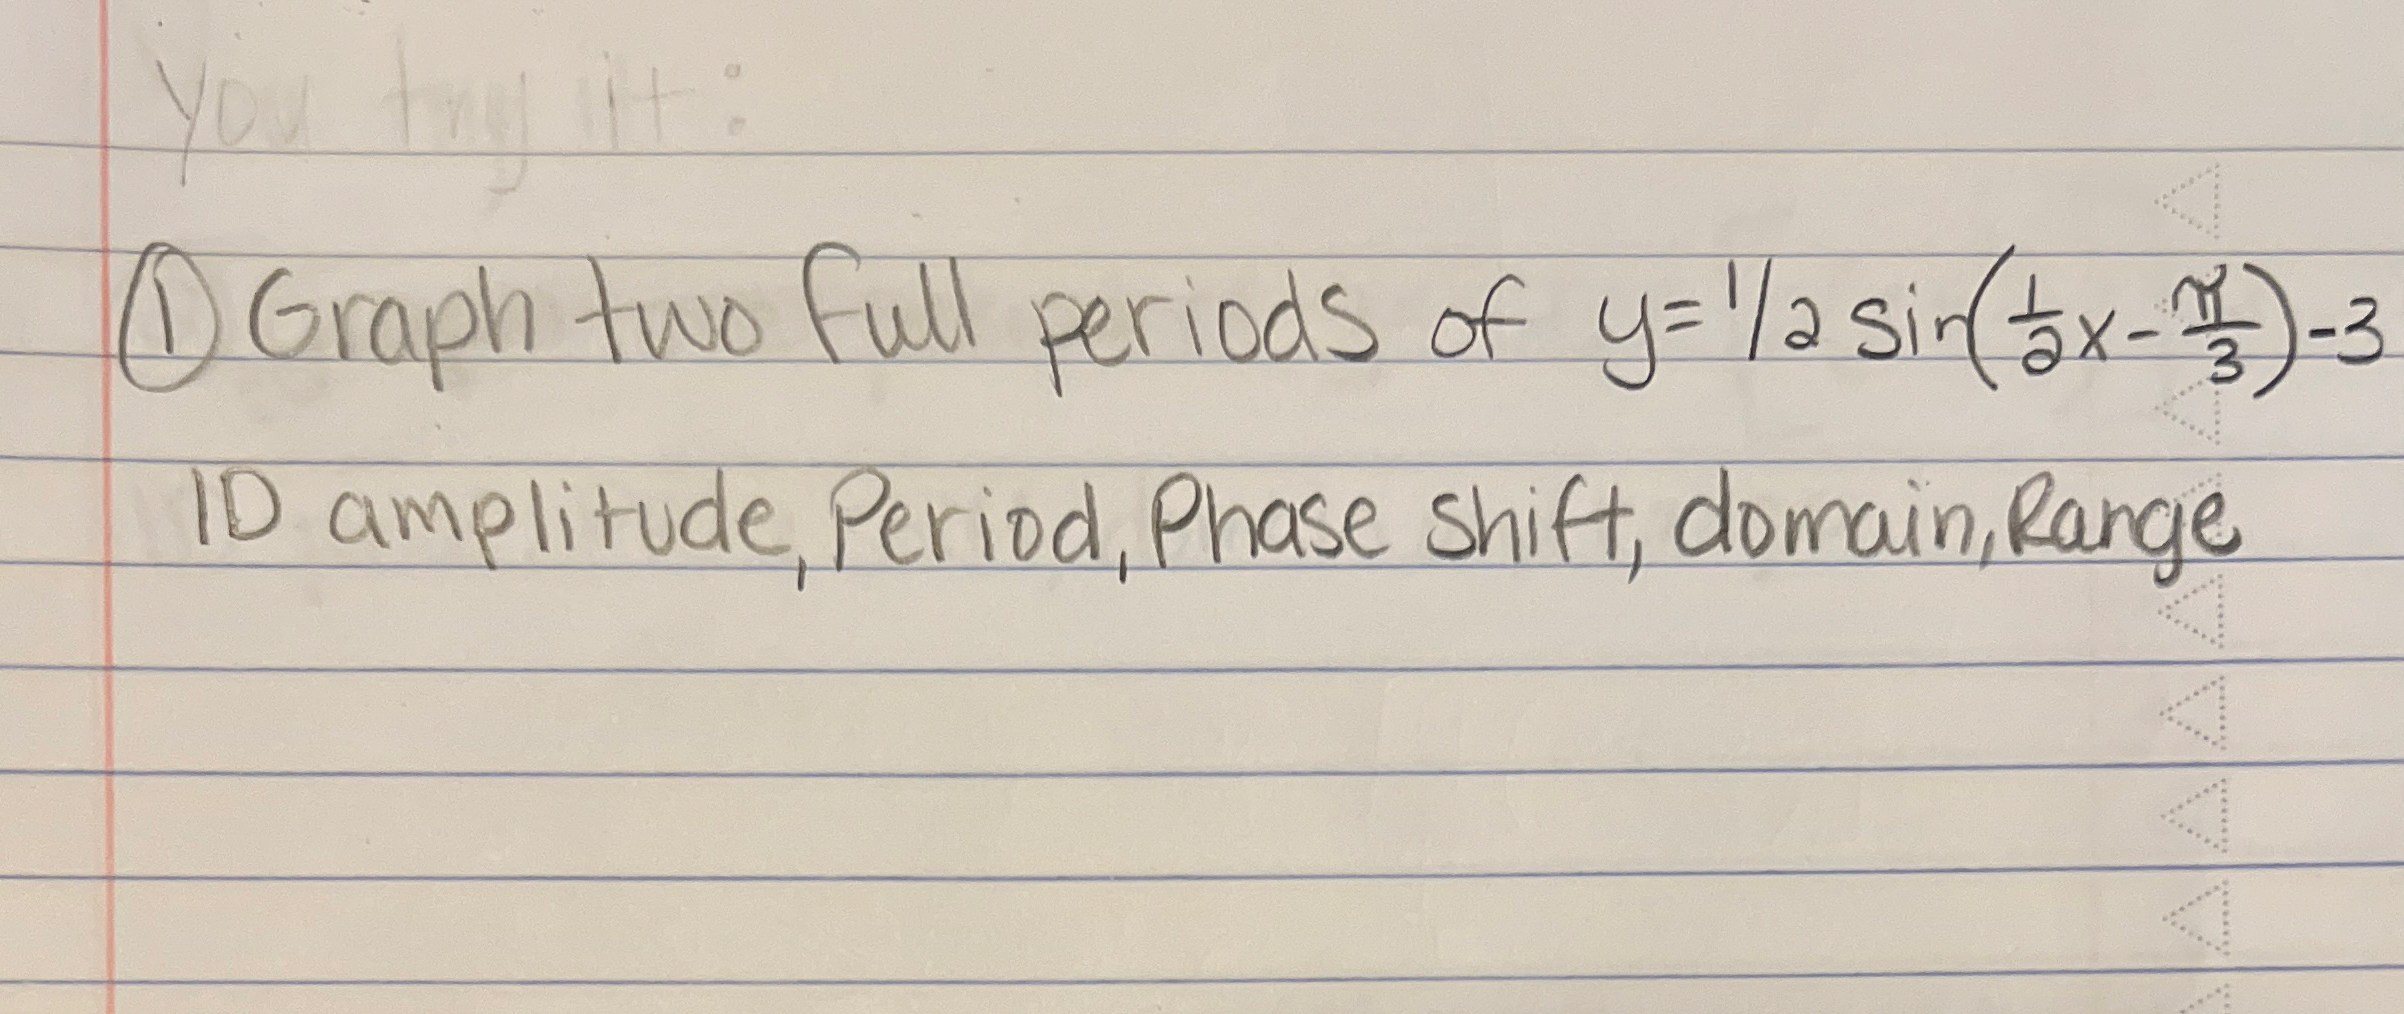 You try it:
① Graph two full periods of y=1/2 sin(½x-π/3)-3
ID amplitude, Period, Phase shift, domain, Range